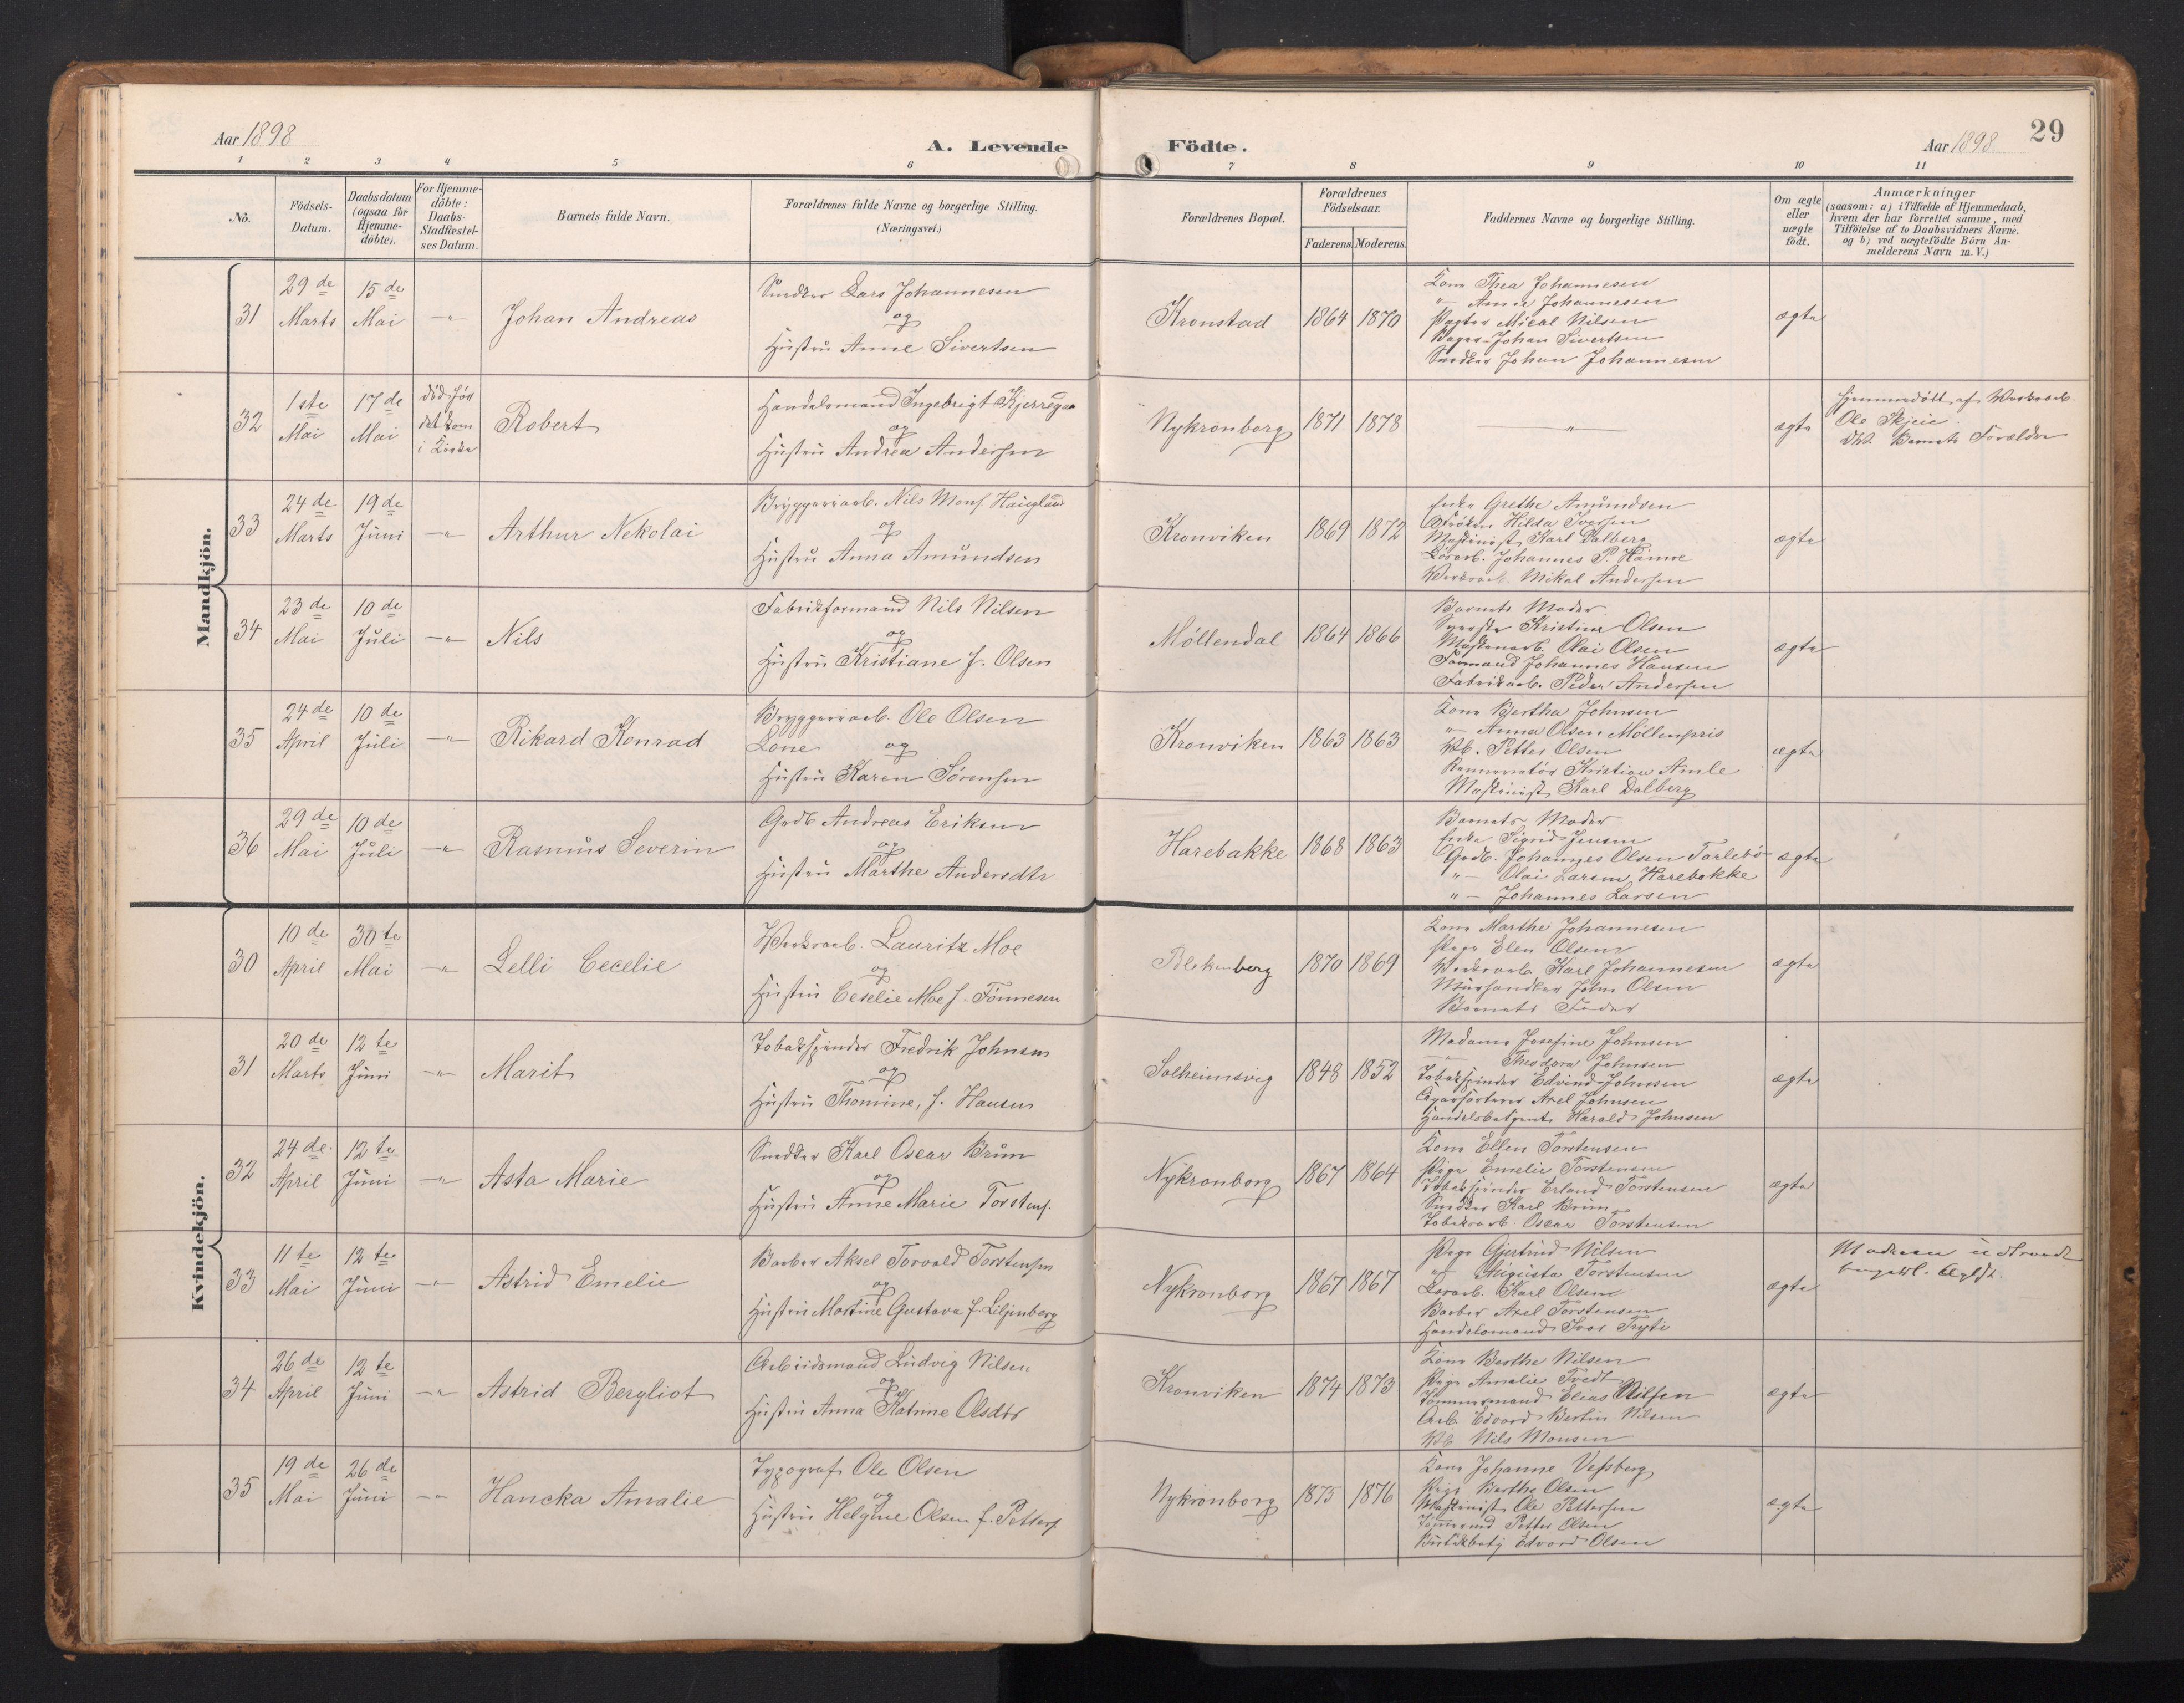 Aar 1898
A. Levende
Födte.
Aar 1898.
29
1 2 3 4 5 6 7 8 9 10 11
No.
Födsels-
Datum.
Daabsdatum
(ogsaa for
Hjemme-
döbte).
For Hjemme-
döbte:
Daabs-
Stadfæstel-
ses Datum.
Barnets fulde Navn.
Forældrenes fulde Navne og borgerlige Stilling.
(Næringsvei.)
Forældrenes Bopæl.
Forældrenes
Födselsaar.
Faderens. Moderens.
Faddernes Navne og borgerlige Stilling.
Om ægte
eller
uægte
födt.
Anmærkninger
(saasom: a) i Tilfælde af Hjemmedaab,
hvem der har forrettet samme, med
Tilföielse af to Daabsvidners Navne,
og b) ved uægtefödte Börn An-
melderens Navn m. V.)
Mandkjön.
31
29de
Marts
15de
Mai
-"-
Johan Andreas
Snedker Lars Johannesen
og
Hustru Anne Sivertsen
Kronstad
1864 1870
Kone Thea Johannesen
"- Anne Johannesen
Pagter Mical Nilsen
Bager Johan Sivertsen
Snedker Johan Johannesen
ægte
32
1ste
Mai
17de
Mai
död för
det kom
i Kirke
Robert
Handelsmand Ingebrigt Kjerregaa
og
Hustru Andrea Andersen
Nykronborg
1871 1878
-"-
ægte
Hjemmedöbt af Værksarb.
Ole Skjeie.
Dbv. Barnets Forældre
33
24de
Marts
19de
Juni
-"-
Arthur Nekolai
Bryggeriarb. Nils Mons. Haugland
og
Hustru Anna Amundsen
Kronviken
1869 1872
Enke Grethe Amundsen
Fröken Hilda Iversen
Maskinist Karl Dalberg
Lösarb. Johannes P. Hamre
Værksarb. Mikal Andersen
ægte
34
23de
Mai
10de
Juli
-"-
Nils
Fabrikformand Nils Nilsen
og
Hustru Kristiane f. Olsen
Möllendal
1864 1866
Barnets Moder
Syerske Kristine Olsen
Maskinarb. Olai Olsen
Formand Johannes Hansen
Fabrikarb. Peder Andersen
ægte
35
24de
April
10de
Juli
-"-
Rikard Konrad
Bryggeriarb. Ole Olsen
Lone og
Hustru Karen Sörensen
Kronviken
1863 1863
Kone Bertha Johnsen
"- Anna Olsen Möllenpris
Petter Olsen
Kristian Amle
Maskinist Karl Dalberg
ægte
36
29de
Mai
10de
Juli
-"-
Rasmus Severin
Grdb. Andreas Eriksen
og
Hustru Marthe Andersdtr
Harebakke
1868 1863
Barnets Moder
Enke Sigrid Jensen
Grdb. Johannes Olsen Tarlebö
"- Olai Larsen Harebakke
"- Johannes Larsen
ægte
Kvindekjön.
30
10de
April
30te
Mai
-"-
Lelli Cecelie
Værksarb. Lauritz Moe
og
Hustru Ceselie Moe f. Tönnesen
Blekenberg
1870 1869
Kone Marthe Johannesen
Pige Elen Olsen
Værksarb. Karl Johannesen
Murhandler John Olsen
Barnets Fader
ægte
31
20de
Marts
12te
Juni
-"-
Marit
Tobakspinder Fredrik Johnsen
og
Hustru Thomine, f. Hansen
Solheimsvig
1848 1852
Madame Josefine Johnsen
-"- Theodora Johnsen
Tobakspinder Edvind Johnsen
Cigarsorterer Axel Johnsen
Handelsbetjent Harald Johnsen
ægte
32
24de
April
12te
Juni
-"-
Asta Marie
Snedker Karl Oscar Brun
og
Hustru Anne Marie Torstens.
Nykronborg
1867 1864
Kone Ellen Torstensen
Pige Emelie Torstensen
Tobakspinder Erland Torstensen
Snedker Karl Brun
Tobaksarb. Oscar Torstensen
ægte
33
11te
Mai
12te
Juni
-"-
Astrid Emelie
Barber Aksel Torvald Torstensen
og
Hustru Martine Gustava f. Liljenberg
Nykronborg
1867 1867
Pige Gjertrud Nilsen
"- Augusta Torstensen
Karl Olsen
Barber Axel Torstensen
Handelsmand Ivar Tryti
ægte
Moderen
34
26de
April
12te
Juni
-"-
Astrid Bergliot
Arbeidsmand Ludvig Nilsen
og
Hustru Anna Katrine Olsdtr
Kronviken
1874 1873
Kone Berthe Nilsen
Pige Amalie Tvedt
Tömmermand Elias Nilsen
Arb. Edvard Bertin Nilsen
Nils Monsen
ægte
35
19de
Mai
26de
Juni
-"-
Hancka Amalie
Typograf Ole Olsen
og
Hustru Helgine Olsen f. Petters.
Nykronborg
1875 1876
Kone Johanne Vessberg
Pige Berthe Olsen
Maskinist Ole Pettersen
Petter Olsen
Butikbetj Edvard Olsen
ægte